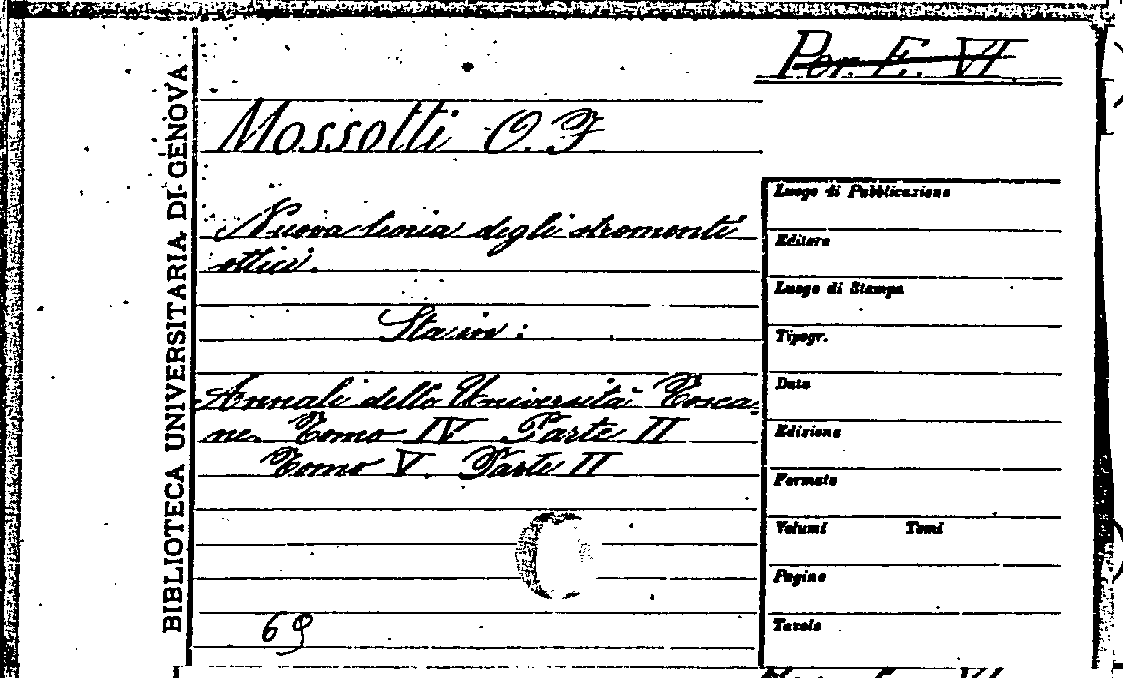 Per. E. VI
BIBLIOTECA UNIVERSITARIA DI GENOVA
Mossotti O. F
Nuova teoria degli stromenti
ottici.
Sta in:
Annali delle Università Tosca=
ne. Tomo IV Parte II
Tomo V. Parte II
69
Luogo di Pubblicazione
Editore
Luogo di Stampa
Tipogr.
Data
Edizione
Formato
Volumi Tomi
Pagine
Tavole